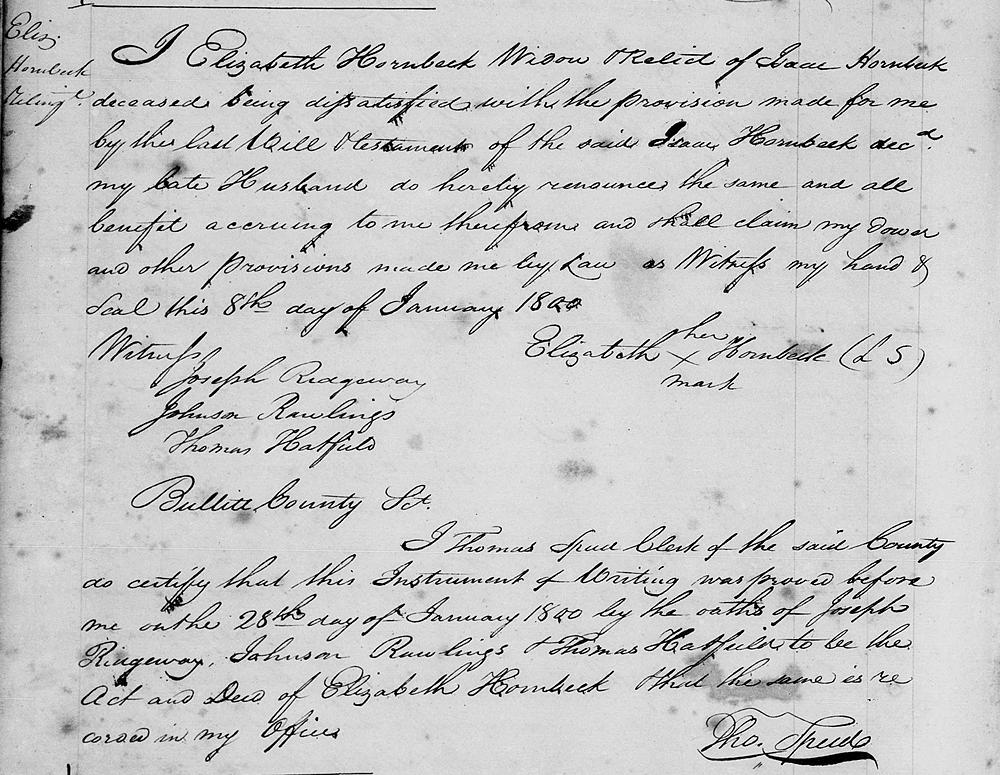 Eliz.
Hornbeck
Relinqt.
I Elizabeth Hornbeck Widow & Relict of Isaac Hornbeck
deceased being dissatisfied with the provision made for me
by the last Will & testament of the said Isaac Hornbeck decd.
my late Husband do hereby renounce the same and all
benefit accruing to me therefrom and shall claim my dower
and other provisions made me by Law as Witness my hand &
Seal this 8th day of January 1800
Witness
Elizabeth her X mark Hornbeck (L S)
Joseph Ridgeway
Johnson Rawlings
Thomas Hatfield
Bullitt County Sct.
I Thomas Speed Clerk of the said County
do certify that this Instrument of Writing was proved before
me on the 28th day of January 1800 by the oaths of Joseph
Ridgeway, Johnson Rawlings & Thomas Hatfield to be the
Act and Deed of Elizabeth Hornbeck & that the same is re
corded in my Office
Tho. Speed